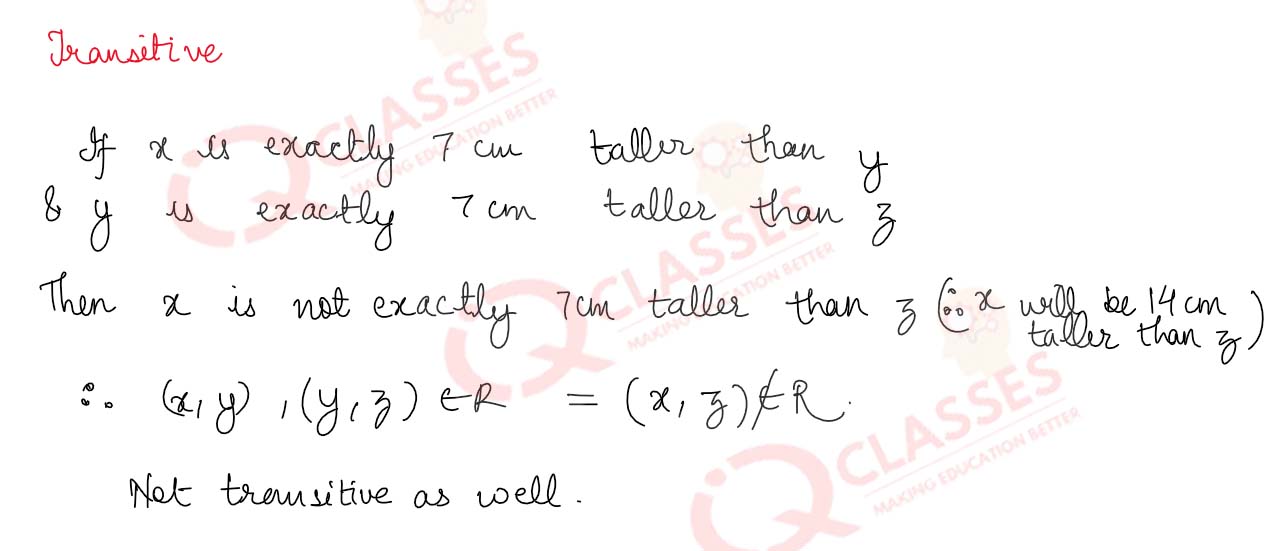 Transitive
If x is exactly 7 cm taller than y
& y is exactly 7 cm taller than z
Then x is not exactly 7cm taller than z (∵ x will be 14 cm
taller than z)
∴ (x, y) , (y, z) ∈ R = (x, z) ∉ R.
Not transitive as well.
CLASSES
MAKING EDUCATION BETTER
CLASSES
MAKING EDUCATION BETTER
CLASSES
MAKING EDUCATION BETTER